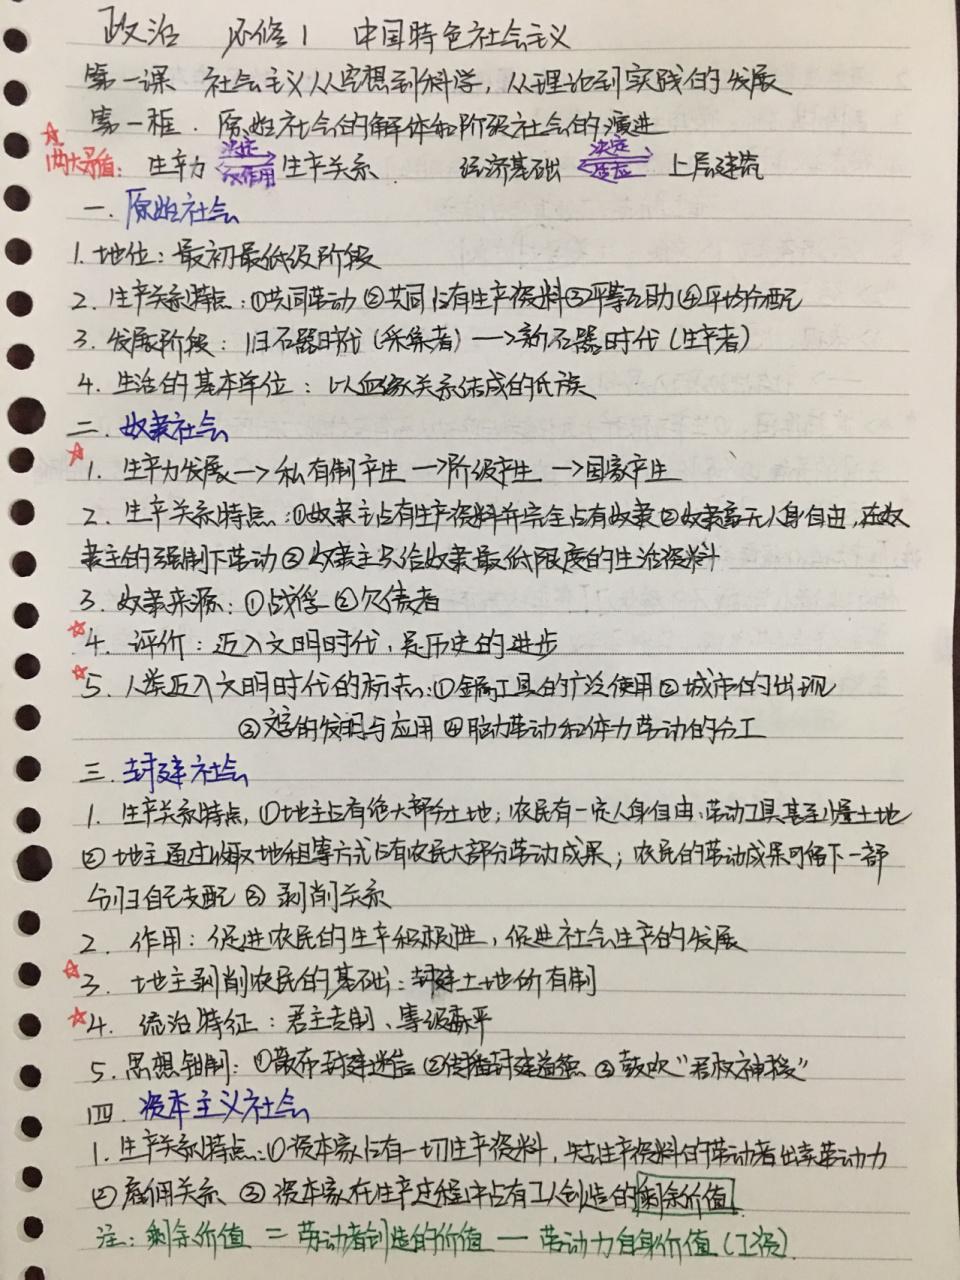 政治 必修1 中国特色社会主义
第一课 社会主义从空想到科学，从理论到实践的发展
第一框．原始社会的解体和阶级社会的演进
☆两大矛盾：生产力 决定 反作用 生产关系． 经济基础 决定 反应 上层建筑
一．原始社会
1.地位：最初最低级阶段
2．生产关系特点：①共同劳动②共同占有生产资料③平等互助④平均分配
3．发展阶段：旧石器时代（采集者）—>新石器时代（生产者）
4．生活的基本单位：以血缘关系结成的氏族
二．奴隶社会
☆1．生产力发展—>私有制产生—>阶级产生—>国家产生
2．生产关系特点：①奴隶主占有生产资料并完全占有奴隶②奴隶毫无人身自由，在奴
隶主的强制下劳动③奴隶主只给奴隶最低限度的生活资料
3．奴隶来源：①战俘②欠债者
☆4．评价：迈入文明时代，是历史的进步
☆5．人类迈入文明时代的标志：①金属工具的广泛使用②城市的出现
③文字的发明与应用④脑力劳动和体力劳动的分工
三．封建社会
1．生产关系特点，①地主占有绝大部分土地；农民有一定人身自由、劳动工具甚至少量土地
②地主通过收取地租等方式占有农民大部分劳动成果；农民的劳动成果可留下一部
分归自己支配③剥削关系
2．作用：促进农民的生产积极性，促进社会生产的发展
☆3．地主剥削农民的基础：封建土地所有制
☆4．统治特征：君主专制、等级森严
5．思想钳制：①散布封建迷信②传播封建道德③鼓吹“君权神授”
四．资本主义社会
1．生产关系特点：①资本家占有一切生产资料，失去生产资料的劳动者出卖劳动力
②雇佣关系③资本家在生产过程中占有工人创造的剩余价值
注：剩余价值＝劳动者创造的价值—劳动力自身价值（工资）